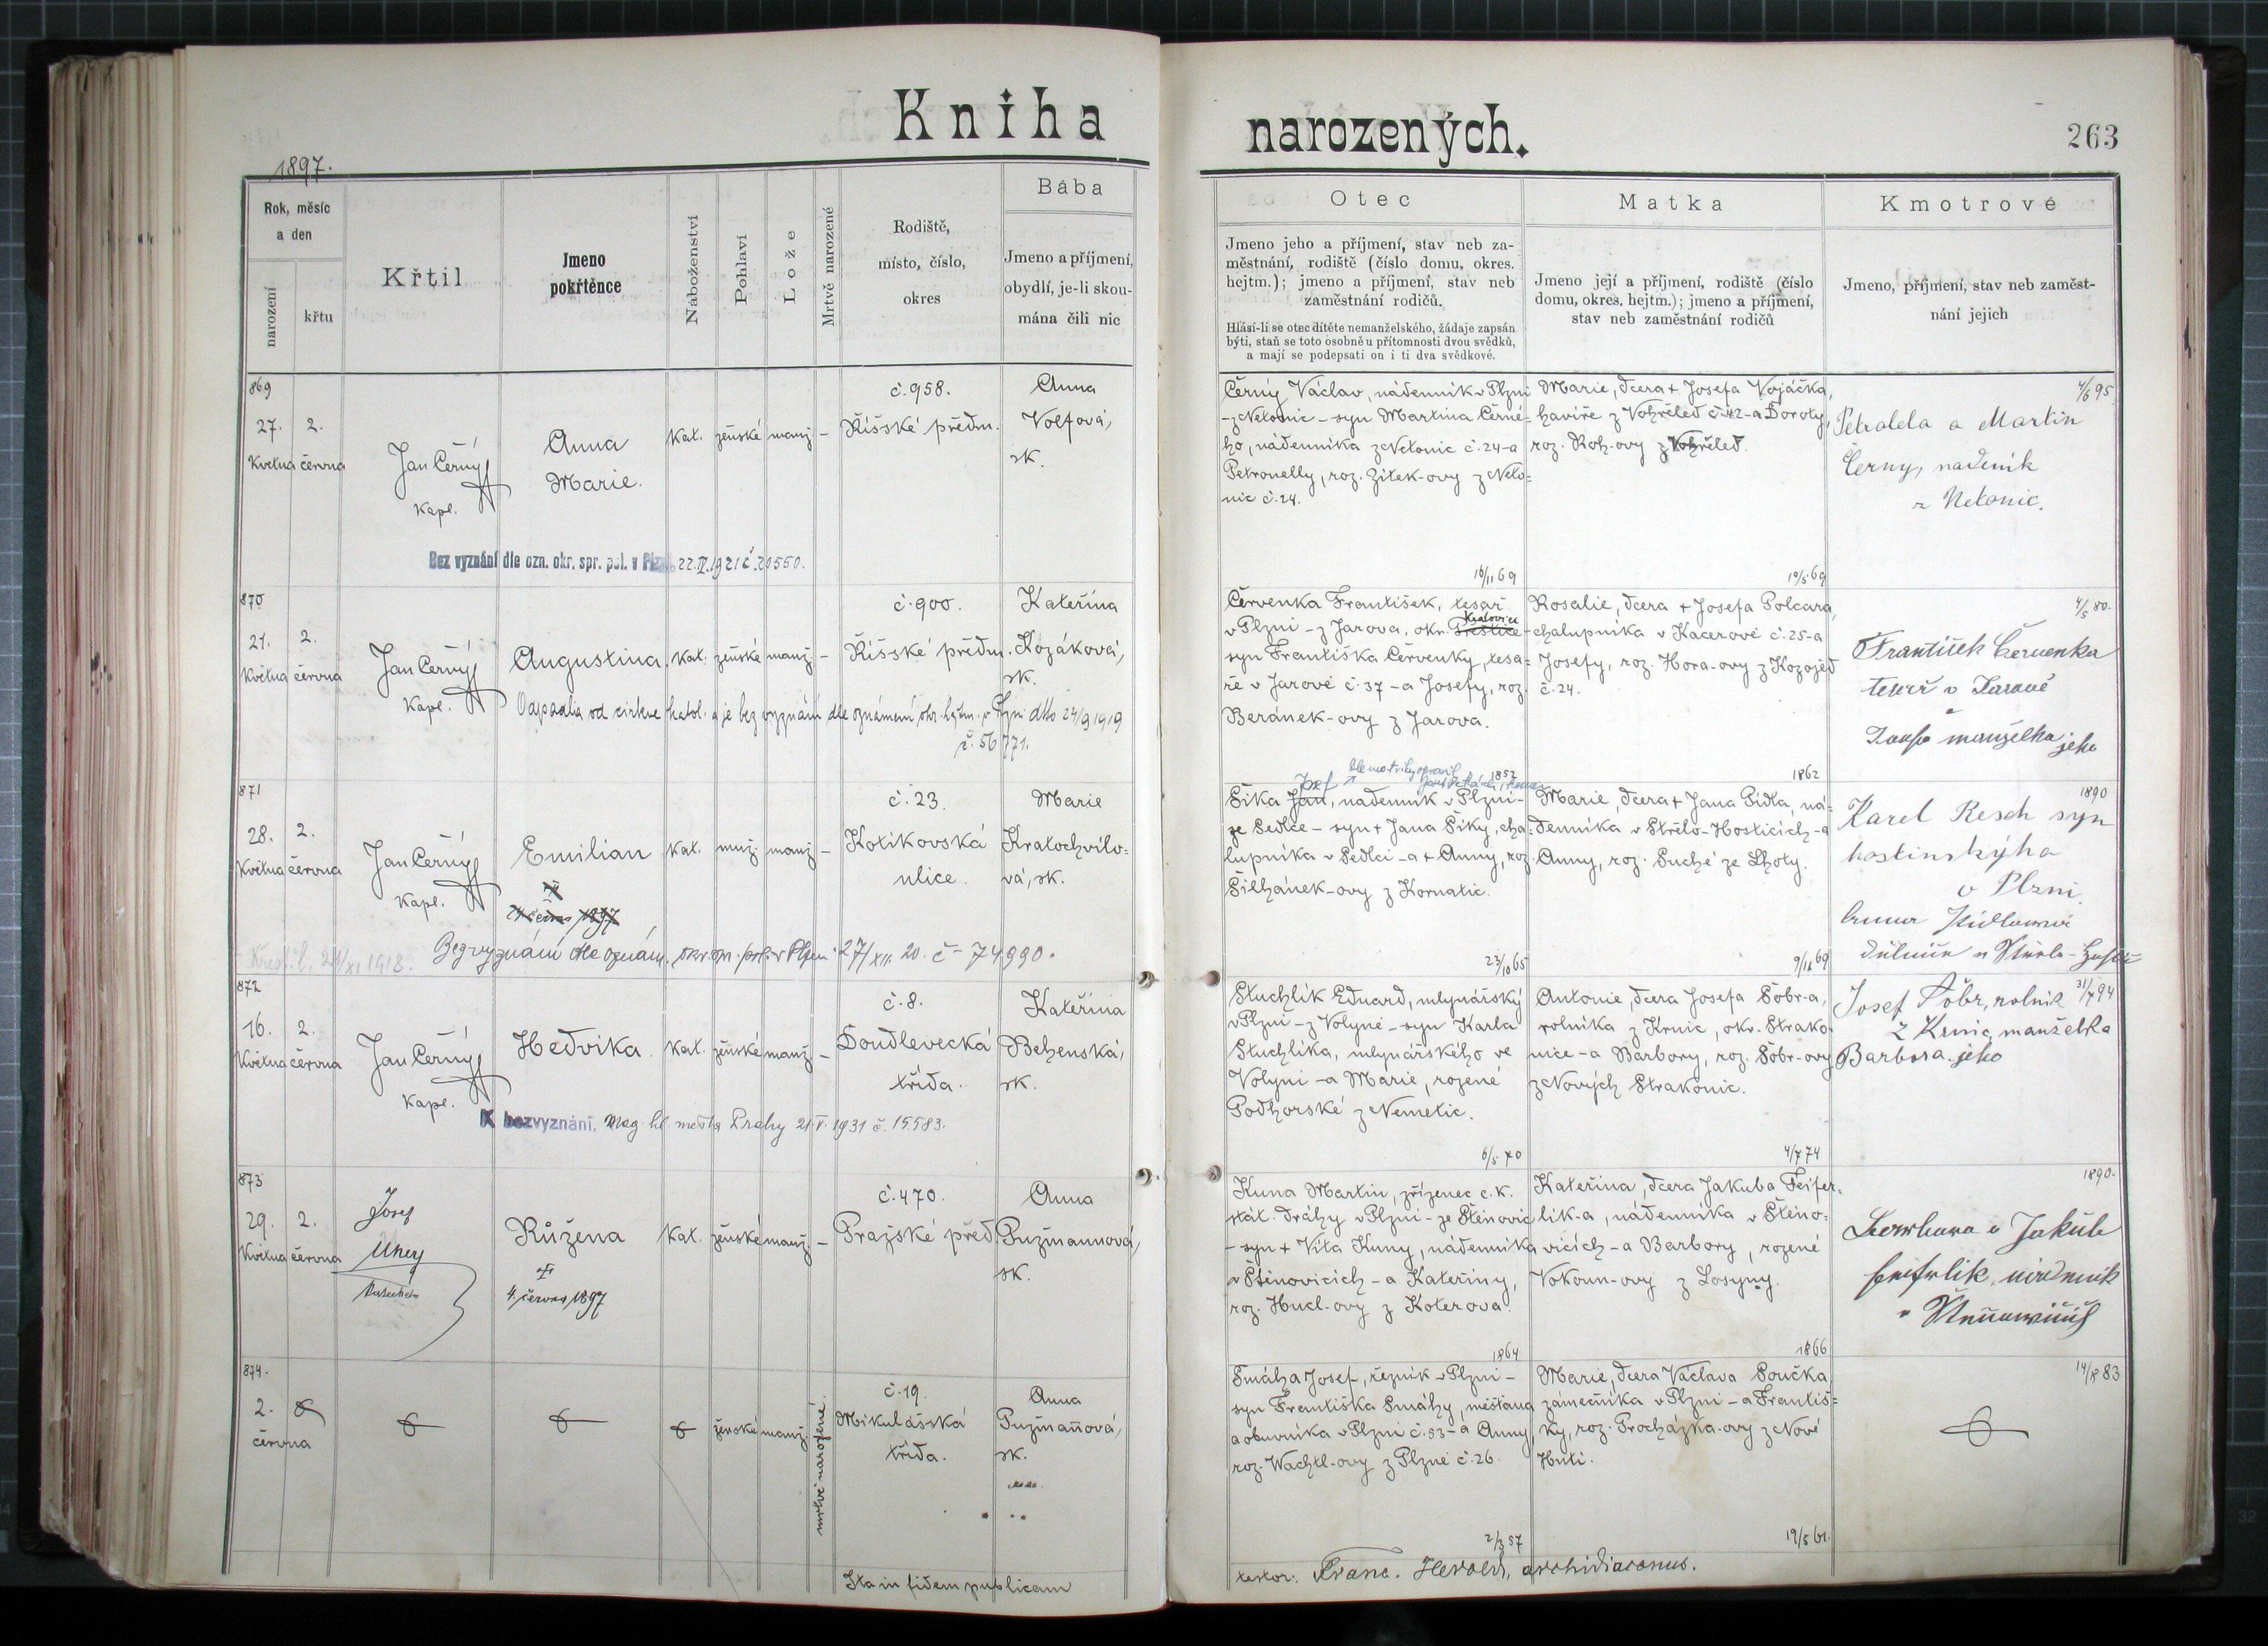 Kniha
narozených.
263
1897.
Rok, měsíc
a den
narození
křtu
Křtil
Jmeno
pokřtěnce
Náboženství
Pohlaví
Lože
Mrtvě narozené
Rodiště,
místo, číslo,
okres
Bába
Jmeno a příjmení,
obydlí, je-li skou-
mána čili nic
Otec
Jmeno jeho a příjmení, stav neb za-
městnání, rodiště (číslo domu, okres.
hejtm.); jmeno a příjmení, stav neb
zaměstnání rodičů.
Hlásí-li se otec dítěte nemanželského, žádaje zapsán
býti, staň se toto osobně u přítomnosti dvou svědků,
a mají se podepsati on i ti dva svědkové.
Matka
Jmeno její a příjmení, rodiště (číslo
domu, okres, hejtm.); jmeno a příjmení,
stav neb zaměstnání rodičů
Kmotrové
Jmeno, příjmení, stav neb zaměst-
nání jejich
869
27.
Května
2.
června
Jan Černý
Kapl.
Anna
Marie.
Kat.
ženské
manž.
–
č. 958.
Říšské předm.
Anna
Volfová,
sk.
Černý Václav, nádenník v Plzni
- z Netonic - syn Martina Černé-
ho, nádenníka z Netonic č. 24 - a
Petronelly, roz. Žítek-ovy z Neto-
nic č. 24.
16/11 69
Marie, dcera + Josefa Vojáčka,
havíře z Vohřeled č. 42 - a Doroty,
roz. Roh-ovy z Vohřeled.
10/5 69
4/6 95
a Martin
Černy, nadeník
z Netonic.
Bez vyznání dle ozn. okr. spr. pol. v Plzni 22.IV.1921 č. 20550.
870
21.
Května
2.
června
Jan Černý
Kapl.
Augustina.
Kat.
ženské
manž.
–
č. 900.
Říšské předm.
Kateřina
Kozáková,
sk.
Červenka František, tesař
v Plzni - z Jarova, okr. Přeštice
Kralovice
syn Františka Červenky, tesa-
ře v Jarově č. 37 - a Josefy, roz.
Beránek-ovy z Jarova.
1857
Rosalie, dcera + Josefa Polcara,
chalupníka v Kacerově č. 25 - a
Josefy, roz. Hora-ovy z Kozojed
č. 24.
1862
4/5 80.
František Červenka
tesař v Jarově
a
manželka jeho
Odpadla od církve katol. a je bez vyznání dle oznámení okr. hejtm. v Plzni dtto 24/9 1919
č. 56 771.
871
28.
Května
2.
června
Jan Černý
Kapl.
Emilian
Kat.
muž.
manž.
–
č. 23.
Kotikovská
ulice.
Marie
Kratochvílo-
vá, sk.
Josef
Šika Jan, nádenník v Plzni -
ze Sedlce - syn + Jana Šiky, cha-
lupníka v Sedlci - a + Anny, roz.
Šilhánek-ovy z Kornatic.
23/10 65
Marie, dcera + Jana Pidla, ná-
denníka v Střelo-Hosticích - a
Anny, roz. Suché ze Lhoty.
1890
Karel Resch syn
hostinskýho
v Plzni.
Bez vyznání dle oznám. okr. spr. pol. v Plzni 27/XII. 20. č - 74990.
872
16.
Května
2.
června
Jan Černý
Kapl.
Hedvika.
Kat.
ženské
manž.
–
č. 8.
Doudlevecká
třída.
Kateřina
Behenská,
sk.
Stuchlík Eduard, mlynářský
v Plzni - z Volyně - syn Karla
Stuchlíka, mlynářského ve
Volyni - a Marie, rozené
Podhorské z Nemětic.
6/5 70
Antonie, dcera Josefa Šobr-a,
rolníka z Krnic, okr. Strako-
nice - a Barbory, roz. Šobr-ovy
z Nových Strakonic.
4/7 74
31/7 94
Josef Šobr, rolník
z Krnic, manželka
Barbora jeho
K bezvyznání. Mag. hl. města Prahy 21.V.1931 č. 15583.
873
29.
Května
2.
června
Josef
Růžena
4. června 1897
Kat.
ženské
manž.
–
č. 470.
Pražské předm.
Anna
Puzmannová,
sk.
Kuna Martin, zřízenec c. k.
stát. dráhy v Plzni - ze Štěnovic
- syn + Víta Kuny, nádenníka
v Štěnovicích - a Kateřiny,
roz. Hucl-ovy z Koterova.
1864
Kateřina, dcera Jakuba Feifer-
lik-a, nádenníka v Štěno-
vicích - a Barbory, rozené
Vokoun-ovy z Losyny.
1866
1890.
a Jakub
874.
2.
června
ženské
manž.
mrtvě narozené
č. 19.
Mikulášská
třída.
Anna
Puzmaňová,
sk.
Smáha Josef, řezník v Plzni -
syn Františka Smáhy, měšťana
a obuvníka v Plzni č. 53 - a Anny,
roz. Wachtl-ovy z Plzně č. 26.
2/3 57
Marie, dcera Václava Součka,
zámečníka v Plzni - a Františ-
ky, roz. Procházka-ovy z Nové
Huti.
19/5 61.
14/8 83
Ita in fidem publicam
testor: Franc. Herold, archidiaconus.